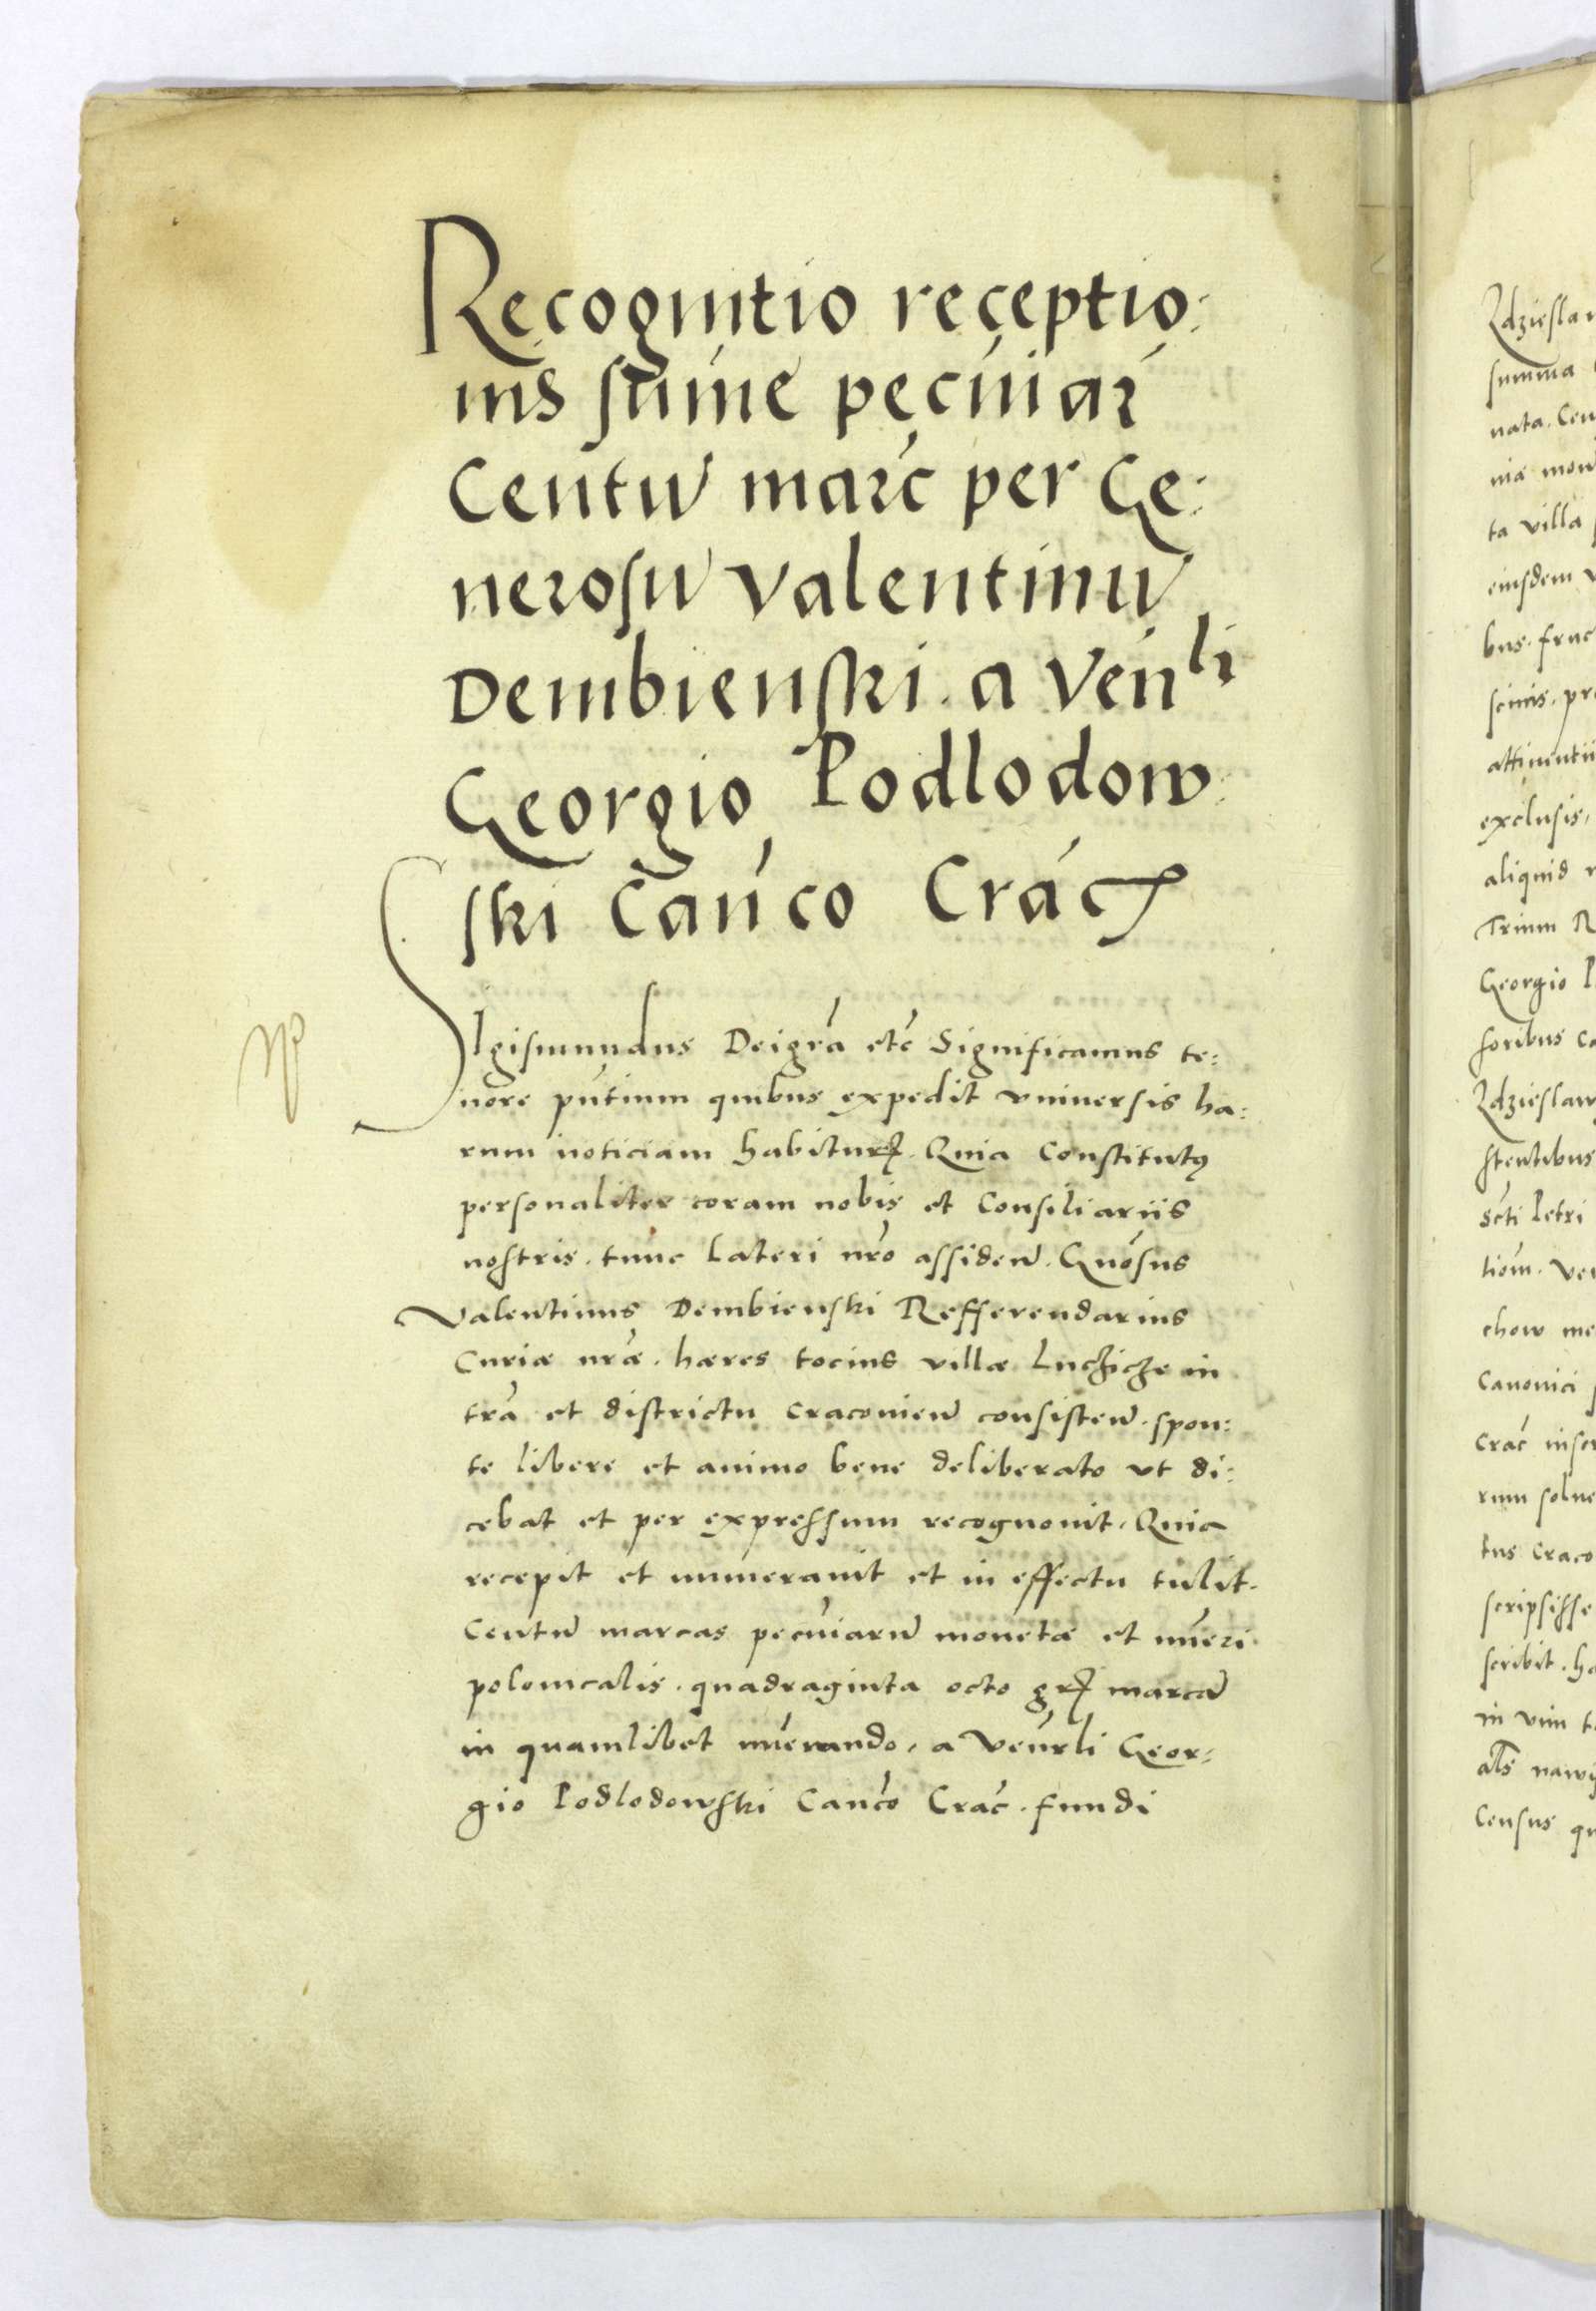 Recognitio receptio:
nis su̅me pecu̅iar̅
Centu̅ marc̅ per Ge:
nerosu̅ Valentinu̅
Dembienski. a Ven̅li
Georgio Podlodow:
ski Can̅co Crac̅
Sigismundus Dei gr̅a etc̅ Significamus te:
nore pn̅tium quibus expedit vniversis ha:
rum noticiam habiturꝝ. Quia Constitutꝯ
personaliter coram nobis et Consiliariis
nostris. tunc lateri nr̅o assiden̅. Gn̅osus
Valentinus Dembienski Refferendarius
Curiæ nr̅æ. hæres tocius villæ Luczicze in
tr̅a et districtu Cracovien̅ consisten̅. spon:
te libere et animo bene deliberato vt di:
cebat et per expressum recognovit. Quia
recepit et numeravit et in effectu tulit.
Centu̅ marcas pecu̅iaru̅ monetæ et nu̅eri
polonicalis. quadraginta octo grꝝ marca̅
in quamlibet nu̅erando. a Ven̅rli Geor:
gio Podlodowski Can̅co Crac̅. fundi
Zdzieslaw
summa
nata. Cen
nia mon
ta villa
eiusdem
bus. fruc
scinis. pr
attinentii
exclusis.
aliquid
Trium R
Georgio P
soribus Co
Zdzieslaw
stentibus
Sc̅ti Petri
tiom̅. Ve
chow me
Canonici
Crac̅ inscr
rum solue
tus Craco
scripsisse
scribit. ha
in vim
al̅s naw
Census qu